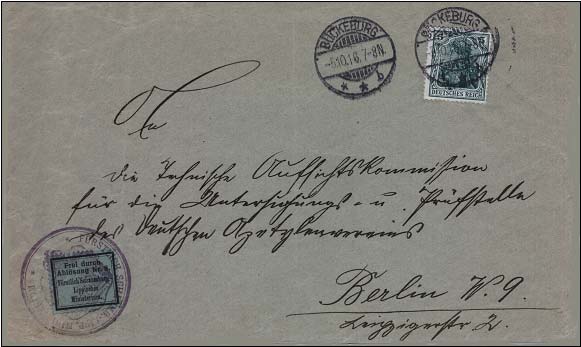 BÜCKEBURG
-5.10.16.7-8N.
* * b
BÜCKEBURG
DEUTSCHES REICH
An
die Technische Aufsichtskommission
für die Untersuchungs- u. Prüfstelle
des Deutschen Azetylenvereins
Berlin W. 9.
Leipzigerstr 2.
Frei durch
Ablösung Nr.
Fürstlich Schaumburg-
Lippisches
Ministerium.
FÜRSTLICH